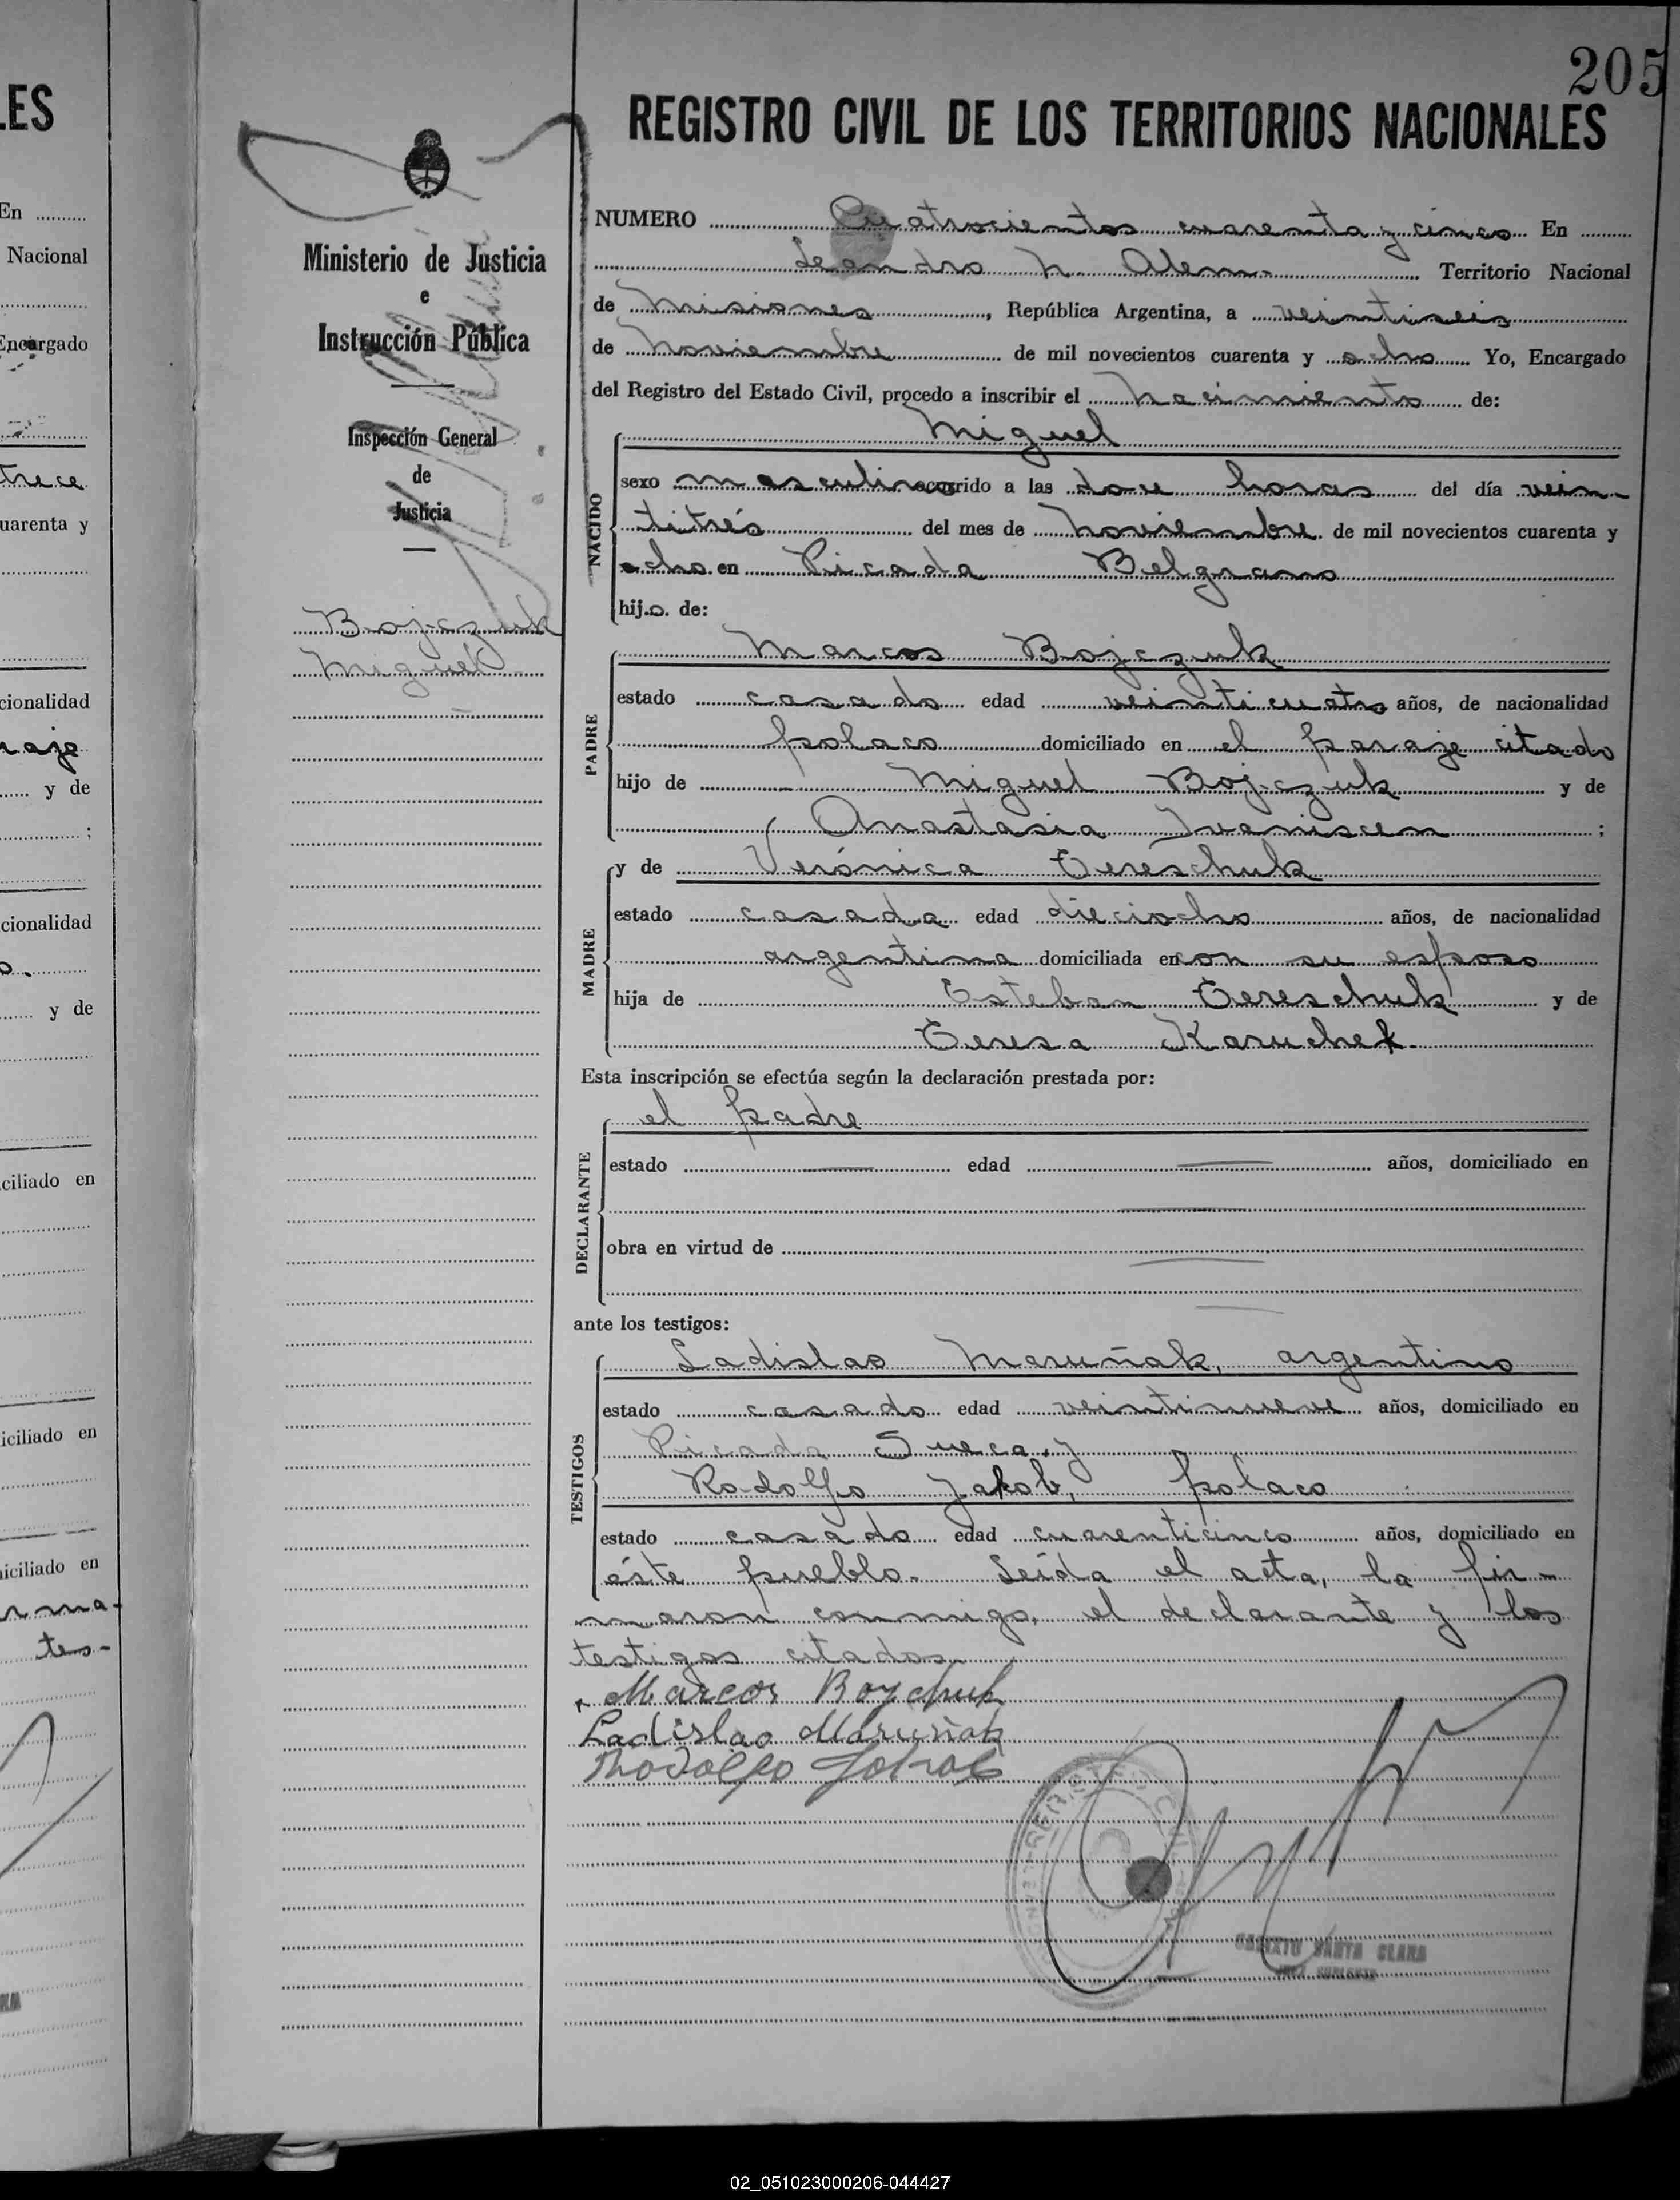 205
REGISTRO CIVIL DE LOS TERRITORIOS NACIONALES
Ministerio de Justicia
e
Instrucción Pública
Inspección General
de
Justicia
Bojczuk
Miguel
NUMERO Cuatrocientos cuarenta y cinco En
Leandro N. Alem.- Territorio Nacional
de Misiones, República Argentina, a veintiseis
de Noviembre de mil novecientos cuarenta y ocho Yo, Encargado
del Registro del Estado Civil, procedo a inscribir el Nacimiento de:
NACIDO
Miguel
sexo masculino ocurrido a las doce horas del día vein-
titrés del mes de Noviembre de mil novecientos cuarenta y
ocho en Picada Belgrano
hijo. de:
PADRE
Marcos Bojczuk
estado casado edad veinticuatro años, de nacionalidad
polaco domiciliado en el paraje citado
hijo de Miguel Bojczuk y de
Anastasia ;
MADRE
y de Verónica Tereschuk
estado casada edad dieciocho años, de nacionalidad
argentina domiciliada en con su esposo
hija de Esteban Tereschuk y de
Teresa Karuchek.
Esta inscripción se efectúa según la declaración prestada por:
DECLARANTE
el padre
estado edad años, domiciliado en
obra en virtud de
ante los testigos:
TESTIGOS
Ladislao Maruñak, argentino
estado casado edad veintinueve años, domiciliado en
Picada Sueca y
Rodolfo Jakob, polaco
estado casado edad cuarenticinco años, domiciliado en
éste pueblo.- Leída el acta, la fir-
maron conmigo, el declarante y los
testigos citados.-
Marcos Boychuk
Ladislao Maruñak
Rodolfo Jakob
CALIXTO SANTA CLARA
JUEZ SUPLENTE
LES
En
Nacional
Encargado
trece
cuarenta y
cionalidad
raje
y de
;
cionalidad
o.
y de
ciliado en
iciliado en
iciliado en
rma-
tes-
02_051023000206-044427